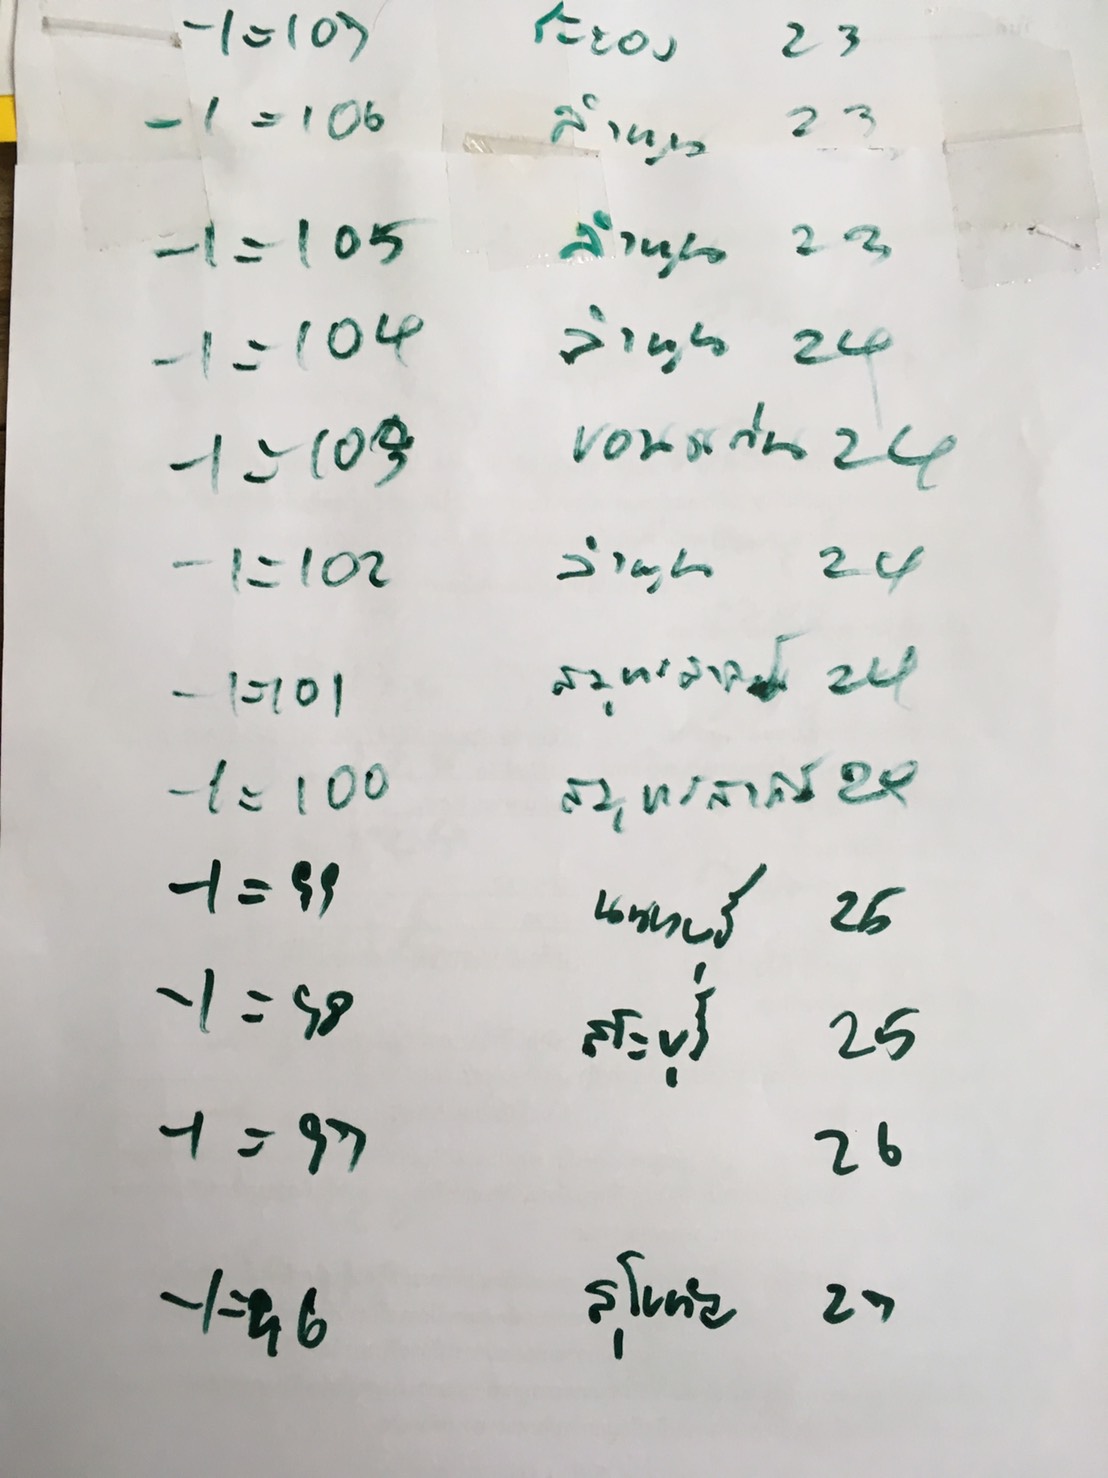 -1=107 ระยอง 23
-1=106 ลำพูน 23
-1=105 ลำพูน 23
-1=104 ลำพูน 24
-1=103 ขอนแก่น 24
-1=102 ลำพูน 24
-1=101 สมุทรสาคร 24
-1=100 สมุทรสาคร 24
-1=99 นนทบุรี 25
-1=98 สระบุรี 25
-1=97 26
-1=96 สุโขทัย 27